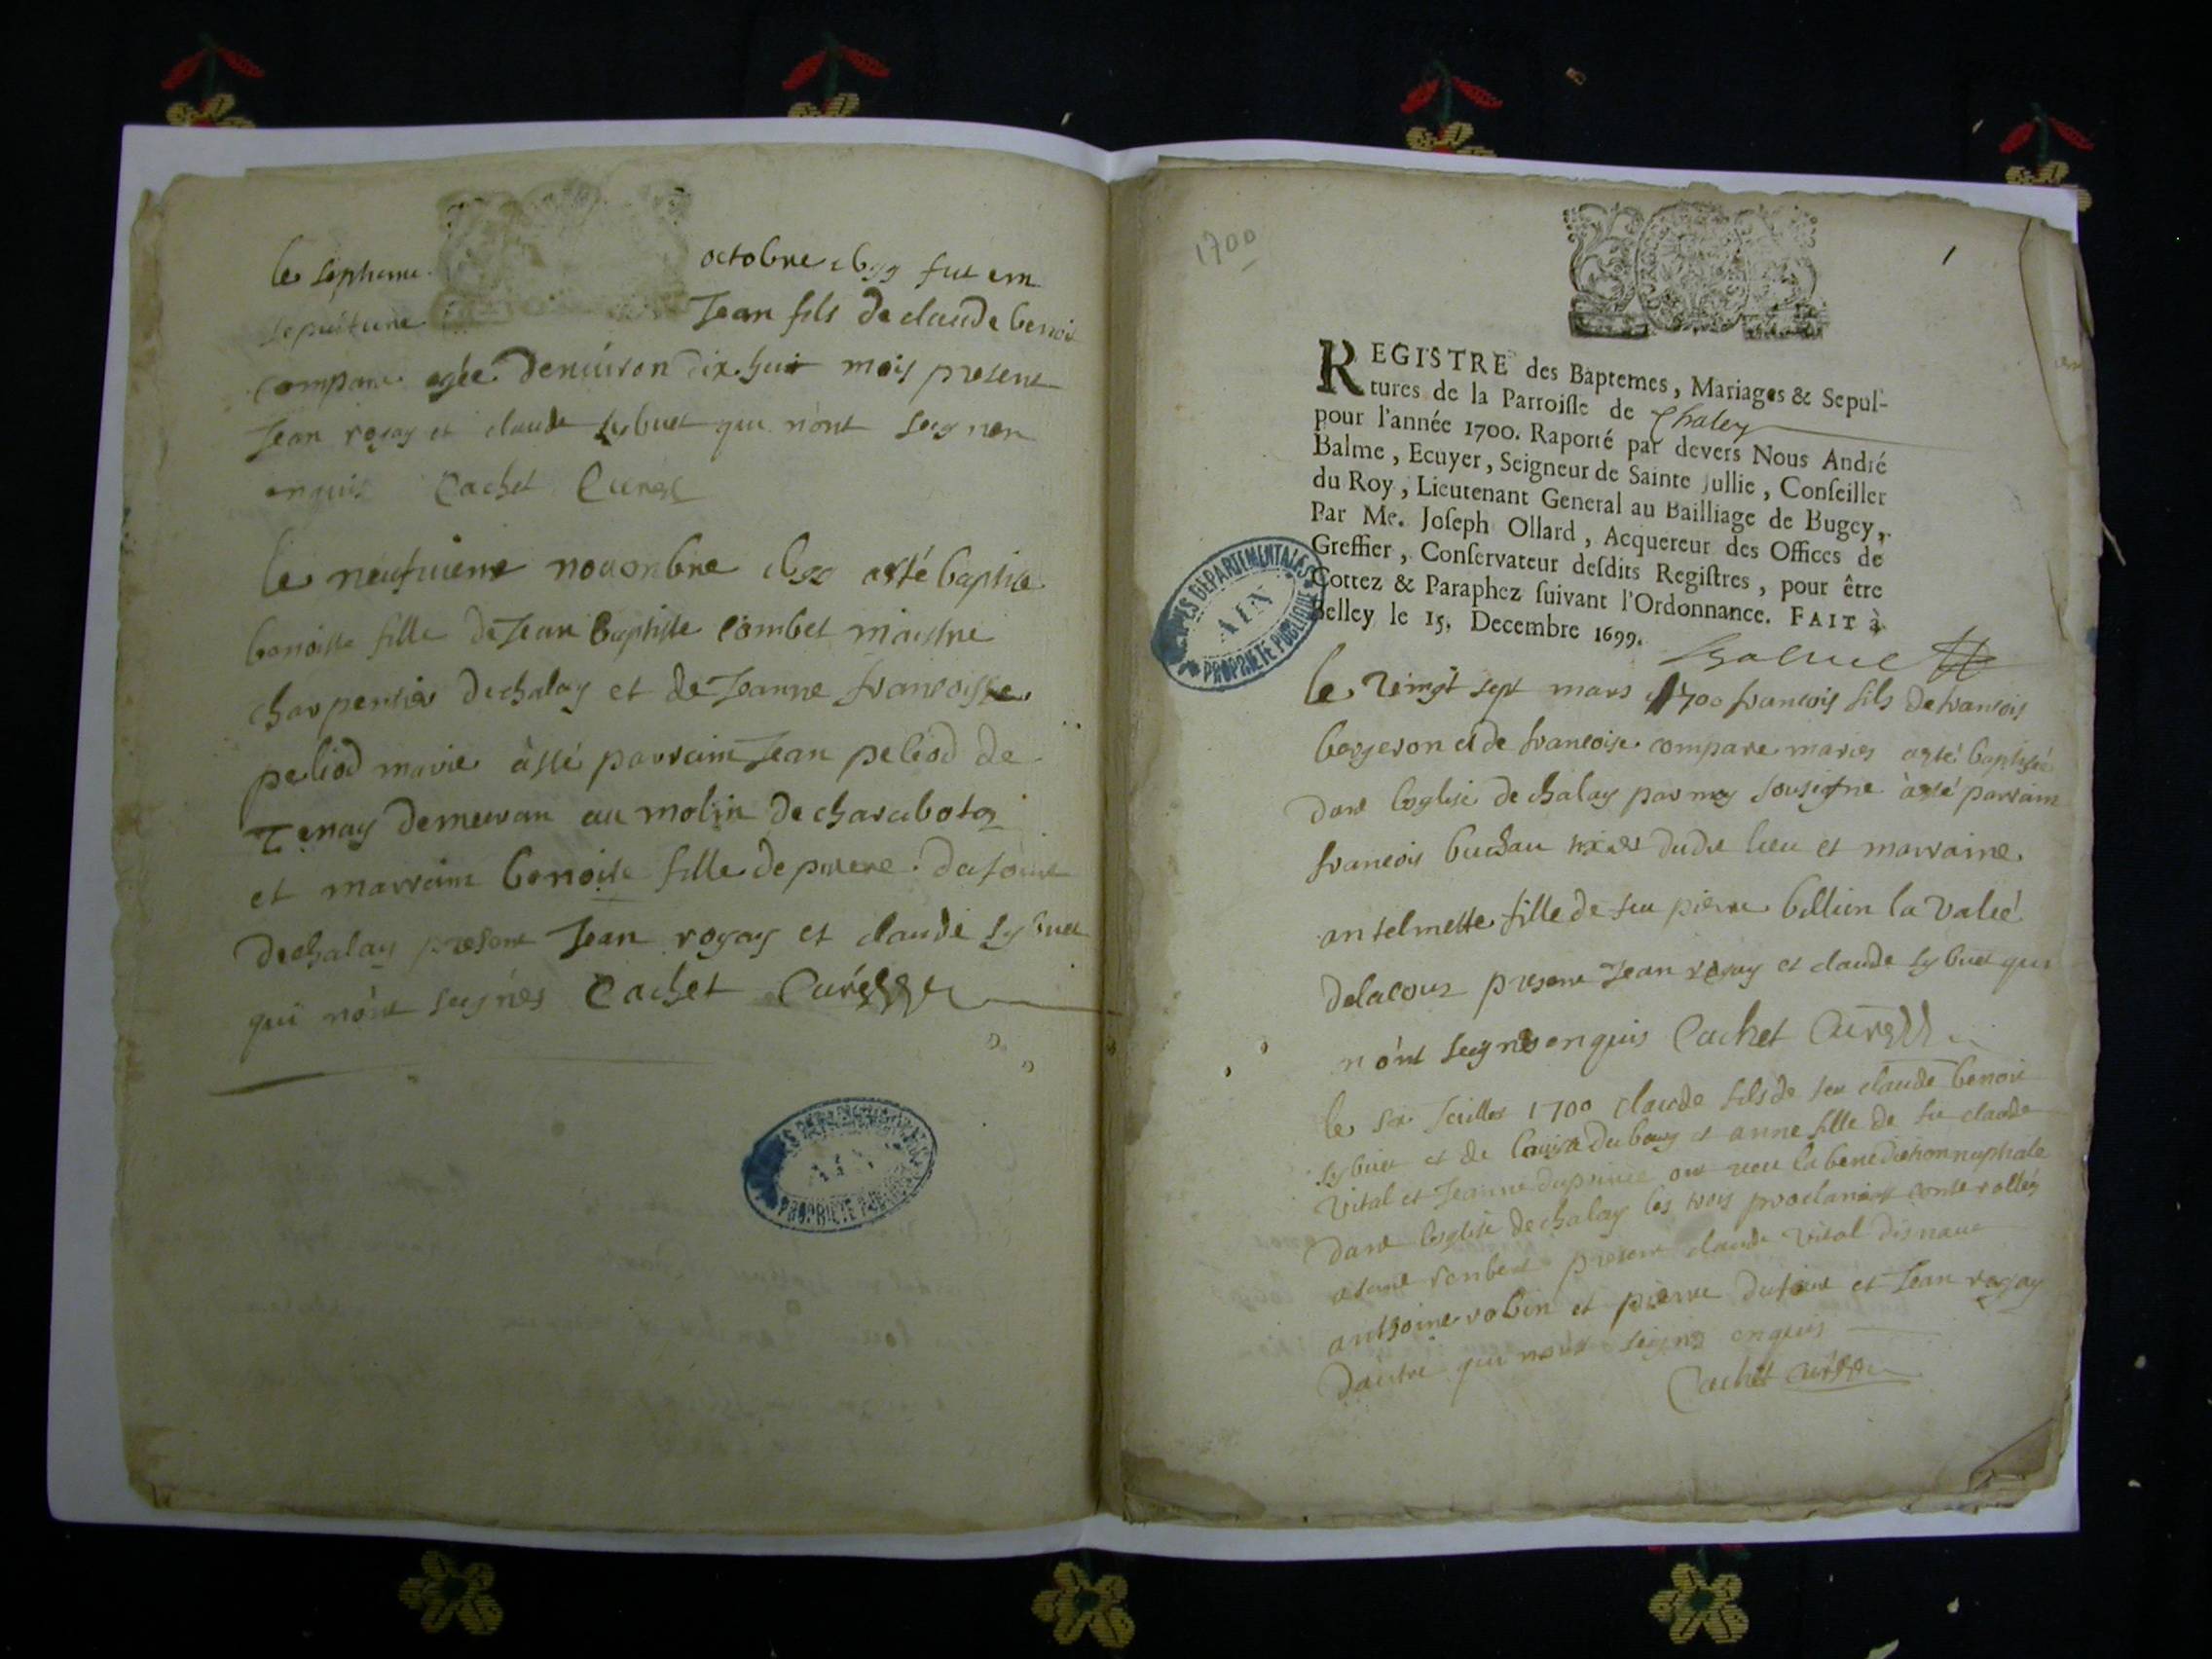 le septieme octobre 1699 fut en
sepulture Jean fils de claude benoit
compare agée denuiron dix huit mois present
Jean rogay et claude sybuet qui nont seignen
enquis Cachet Curé
le neufuieme nouenbre 1699 asté baptise
benoiste fille de Jean baptiste Combet maistre
charpentier de chaley et de Jeanne francoisse
peliod marie àsté parrain Jean peliod de
Tenay demeuran au molin de charabotas
et marraine benoiste fille de piere dufour
de chalay present Jean rogay et claude sybuet
qui nont seignés Cachet Curé
ARCHIVES DEPARTEMENTALES
AIN
PROPRIETE PUBLIQUE
1700
1
REGISTRE des Baptemes, Mariages & Sepul-
tures de la Parroisse de Chaley
pour l'année 1700. Raporté par devers Nous André
Balme, Ecuyer, Seigneur de Sainte Jullie, Conseiller
du Roy, Lieutenant General au Bailliage de Bugey,
Par Me. Joseph Ollard, Acquereur des Offices de
Greffier, Conservateur desdits Registres, pour être
Cottez & Paraphez suivant l'Ordonnance. FAIT à
Belley le 15. Decembre 1699.
ARCHIVES DEPARTEMENTALES
AIN
PROPRIETE PUBLIQUE
le vingt sept mars 1700 francois fils de francois
bergeron et de francoise compare maries asté baptisé
dans leglise de chalay par moy sousigne àsté parrain
francois buchau dudit lieu et marraine
antelmette fille de feu pierre billion la valié
delacour present Jean rogay et claude sybuet qui
nont seignés enquis Cachet Curé
le six Juillet 1700 claude fils de feu claude benoit
sybuet et de louise dubourg et anne fille de feu claude
vital et Jeanne duprince ont receu la benediction nuptiale
dans leglise de chalay les trois proclamions controllés
present claude vital disnaut
anthoine robin et pierre dufour et Jean rogay
dautre qui nont seignés enquis
Cachet curé